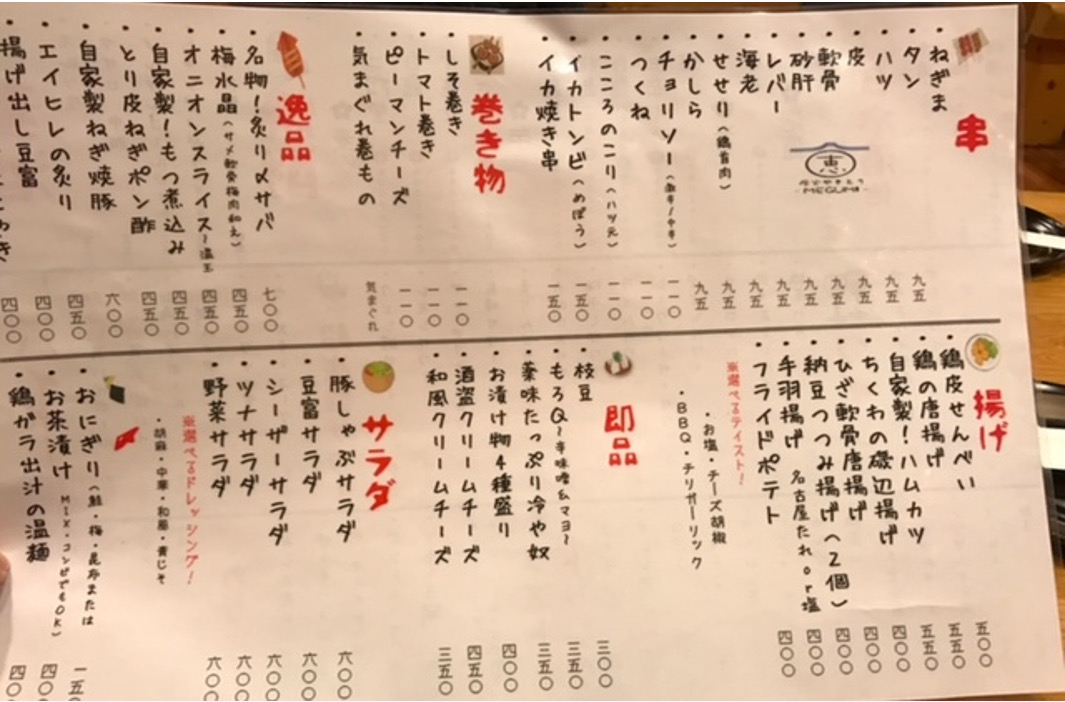 串
・ねぎま
・タン
・ハツ
・皮
・軟骨
・砂肝
・レバー
・海老
・せせり(鶏首肉)
・かしら
・チョリソー(激辛/中辛)
・つくね
・こころのこり(ハツ元)
・イカトンビ(めぽう)
・イカ焼き串
恵
MEGUMI
九五
九五
九五
九五
九五
九五
九五
九五
九五
一一〇
一一〇
一一〇
一五〇
一五〇
巻き物
・しそ巻き
・トマト巻き
・ピーマンチーズ
・気まぐれ巻もの
一一〇
一一〇
一一〇
気まぐれ
逸品
・名物!炙り〆サバ
・梅水晶(サメ軟骨梅肉和え)
・オニオンスライス~温玉
・自家製!もつ煮込み
・とり皮ねぎポン酢
・自家製ねぎ焼豚
・エイヒレの炙り
・揚げ出し豆富
七〇〇
四五〇
四五〇
四五〇
四五〇
六〇〇
四五〇
四〇〇
四〇〇
揚げ
・鶏皮せんべい
・鶏の唐揚げ
・自家製!ハムカツ
・ちくわの磯辺揚げ
・ひざ軟骨唐揚げ
・納豆つつみ揚げ(2個)
・手羽揚げ 名古屋たれor塩
・フライドポテト
※選べるテイスト!
・お塩・チーズ胡椒
・BBQ・チリガーリック
五〇〇
五五〇
五五〇
四〇〇
四〇〇
四〇〇
四〇〇
即品
・枝豆
・もろQ~辛味噌&マヨ~
・薬味たっぷり冷や奴
・お漬け物4種盛り
・酒盗クリームチーズ
・和風クリームチーズ
三〇〇
三五〇
三五〇
四〇〇
四五〇
三五〇
サラダ
・豚しゃぶサラダ
・豆富サラダ
・シーザーサラダ
・ツナサラダ
・野菜サラダ
※選べるドレッシング!
・胡麻・中華・和風・青じそ
六〇〇
六〇〇
六〇〇
六〇〇
六〇〇
・おにぎり(鮭・梅・昆布または
・お茶漬け MIX・コンビでもOK)
・鶏ガラ出汁の温麺
一五〇
四〇〇